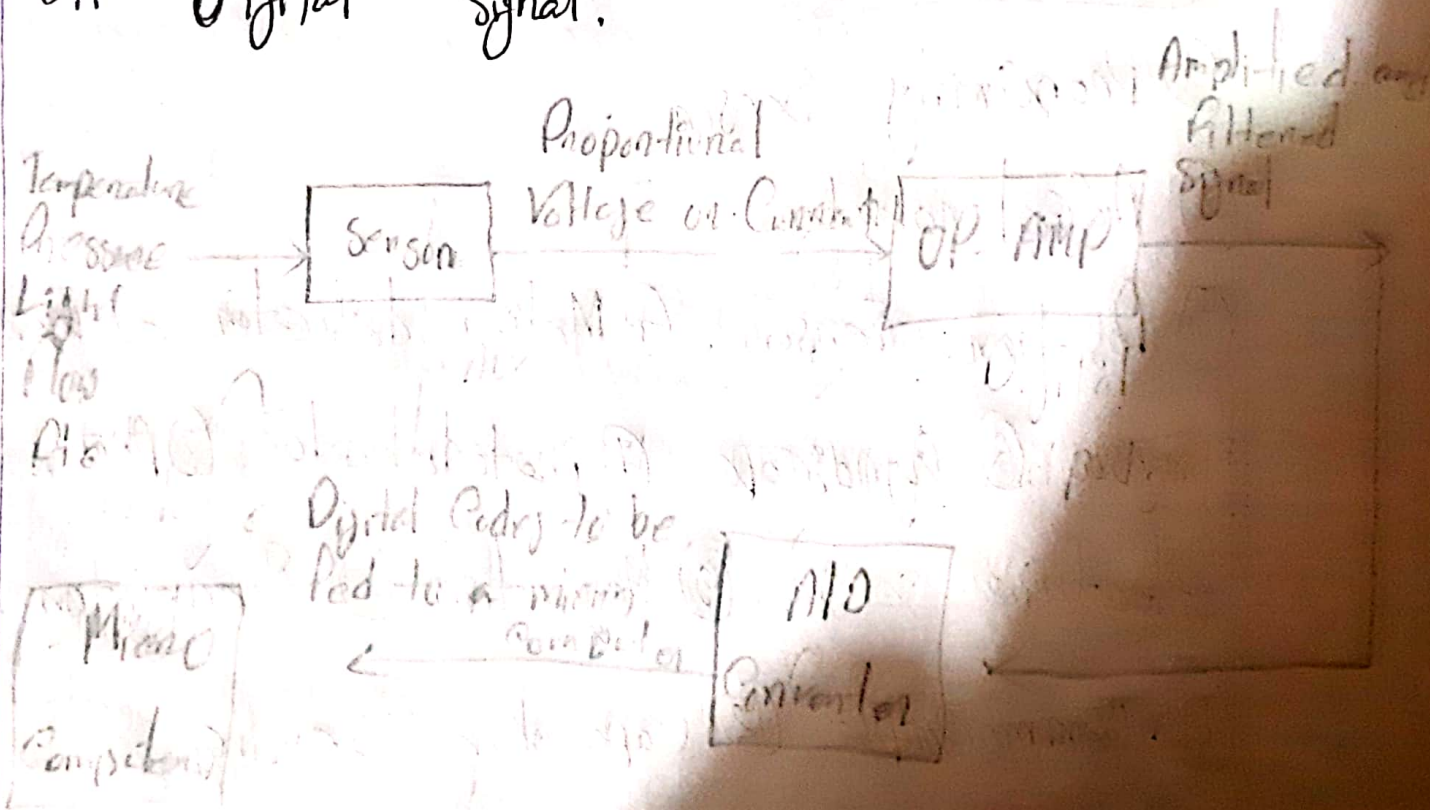 Digital Signal.
Temperature
Pressure
Light
Flow
Sensor
Proportional
Voltage or Current
OP AMP
Amplified and
Filtered
Signal
Digital Codes to be
Fed to a micro
Computer
A/D
Converter
Micro
Computer